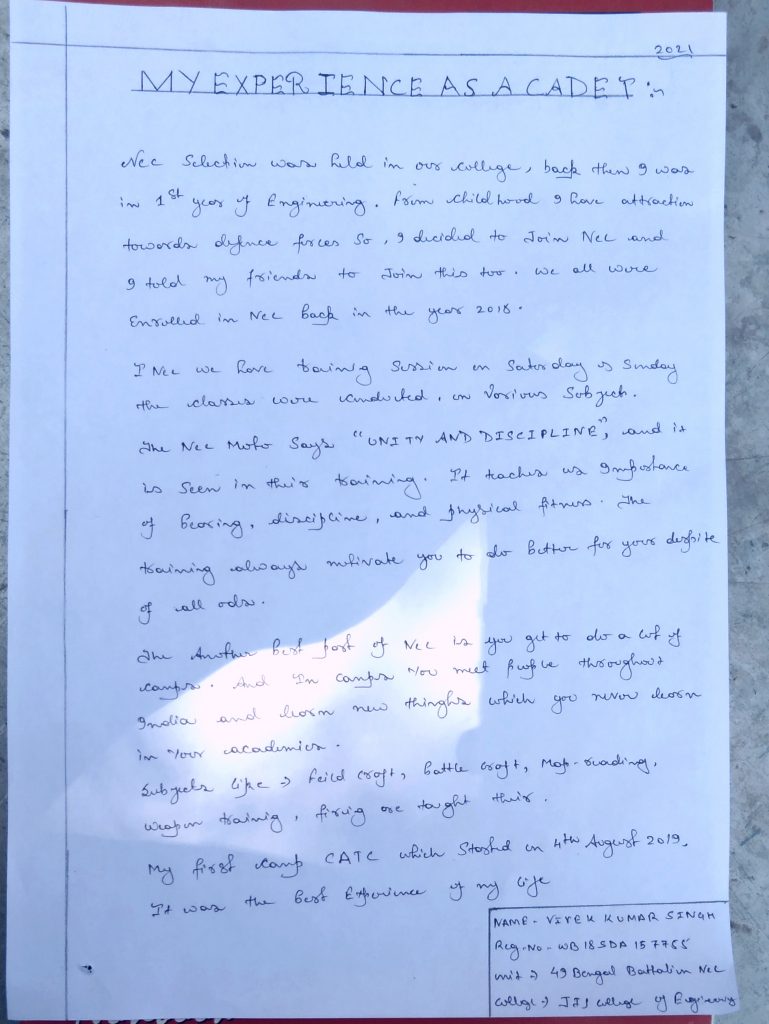 2021
MY EXPERIENCE AS A CADET :-
Ncc Selection was held in our college, back then I was
in 1st year of Engineering. From childhood I have attraction
towards defence forces So, I decided to Join Ncc and
I told my friends to Join this too. we all were
Enrolled in Ncc back in the year 2018.
I Ncc we have traing Session on Saturday & Sunday
the classes were conducted, on Various Subject.
The Ncc Moto Says "UNITY AND DISCIPLINE", and it
is Seen in their training. It teaches us Importance
of bearing, discipline, and physical fitness. The
training always motivate you to do better for your despite
of all ods.
The Another best part of Ncc is you get to do a lot of
camps. And In camps You meet people throughout
India and learn new thinghs which you never learn
in Your academics.
Subjects like → feild craft, battle craft, Map-reading,
weapon trainig, firig are taught their.
My first camp CATC which Started on 4th August 2019.
It was the best Experience of my life
NAME - VIVEK KUMAR SINGH
Reg-No - WB18SDA157755
unit → 49 Bengal Battalion Ncc
college → JIS college of Engineering